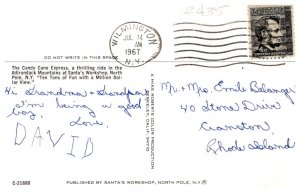 2435
WILMINGTON
JUL 14
AM
1967
N.Y.
DO NOT WRITE IN THIS SPACE
The Candy Cane Express, a thrilling ride in the
Adirondack Mountains at Santa's Workshop, North
Pole, N.Y. "Ten Tons of Fun with a Million Dol-
lar View."
Hi Grandma & Grandpa
I'm being a good
boy,
Love,
DAVID
Mr. & Mrs. Emile Belanger
40 Stone Drive
Cranston,
Rhode Island
C-21858
PUBLISHED BY SANTA'S WORKSHOP, NORTH POLE, N.Y.